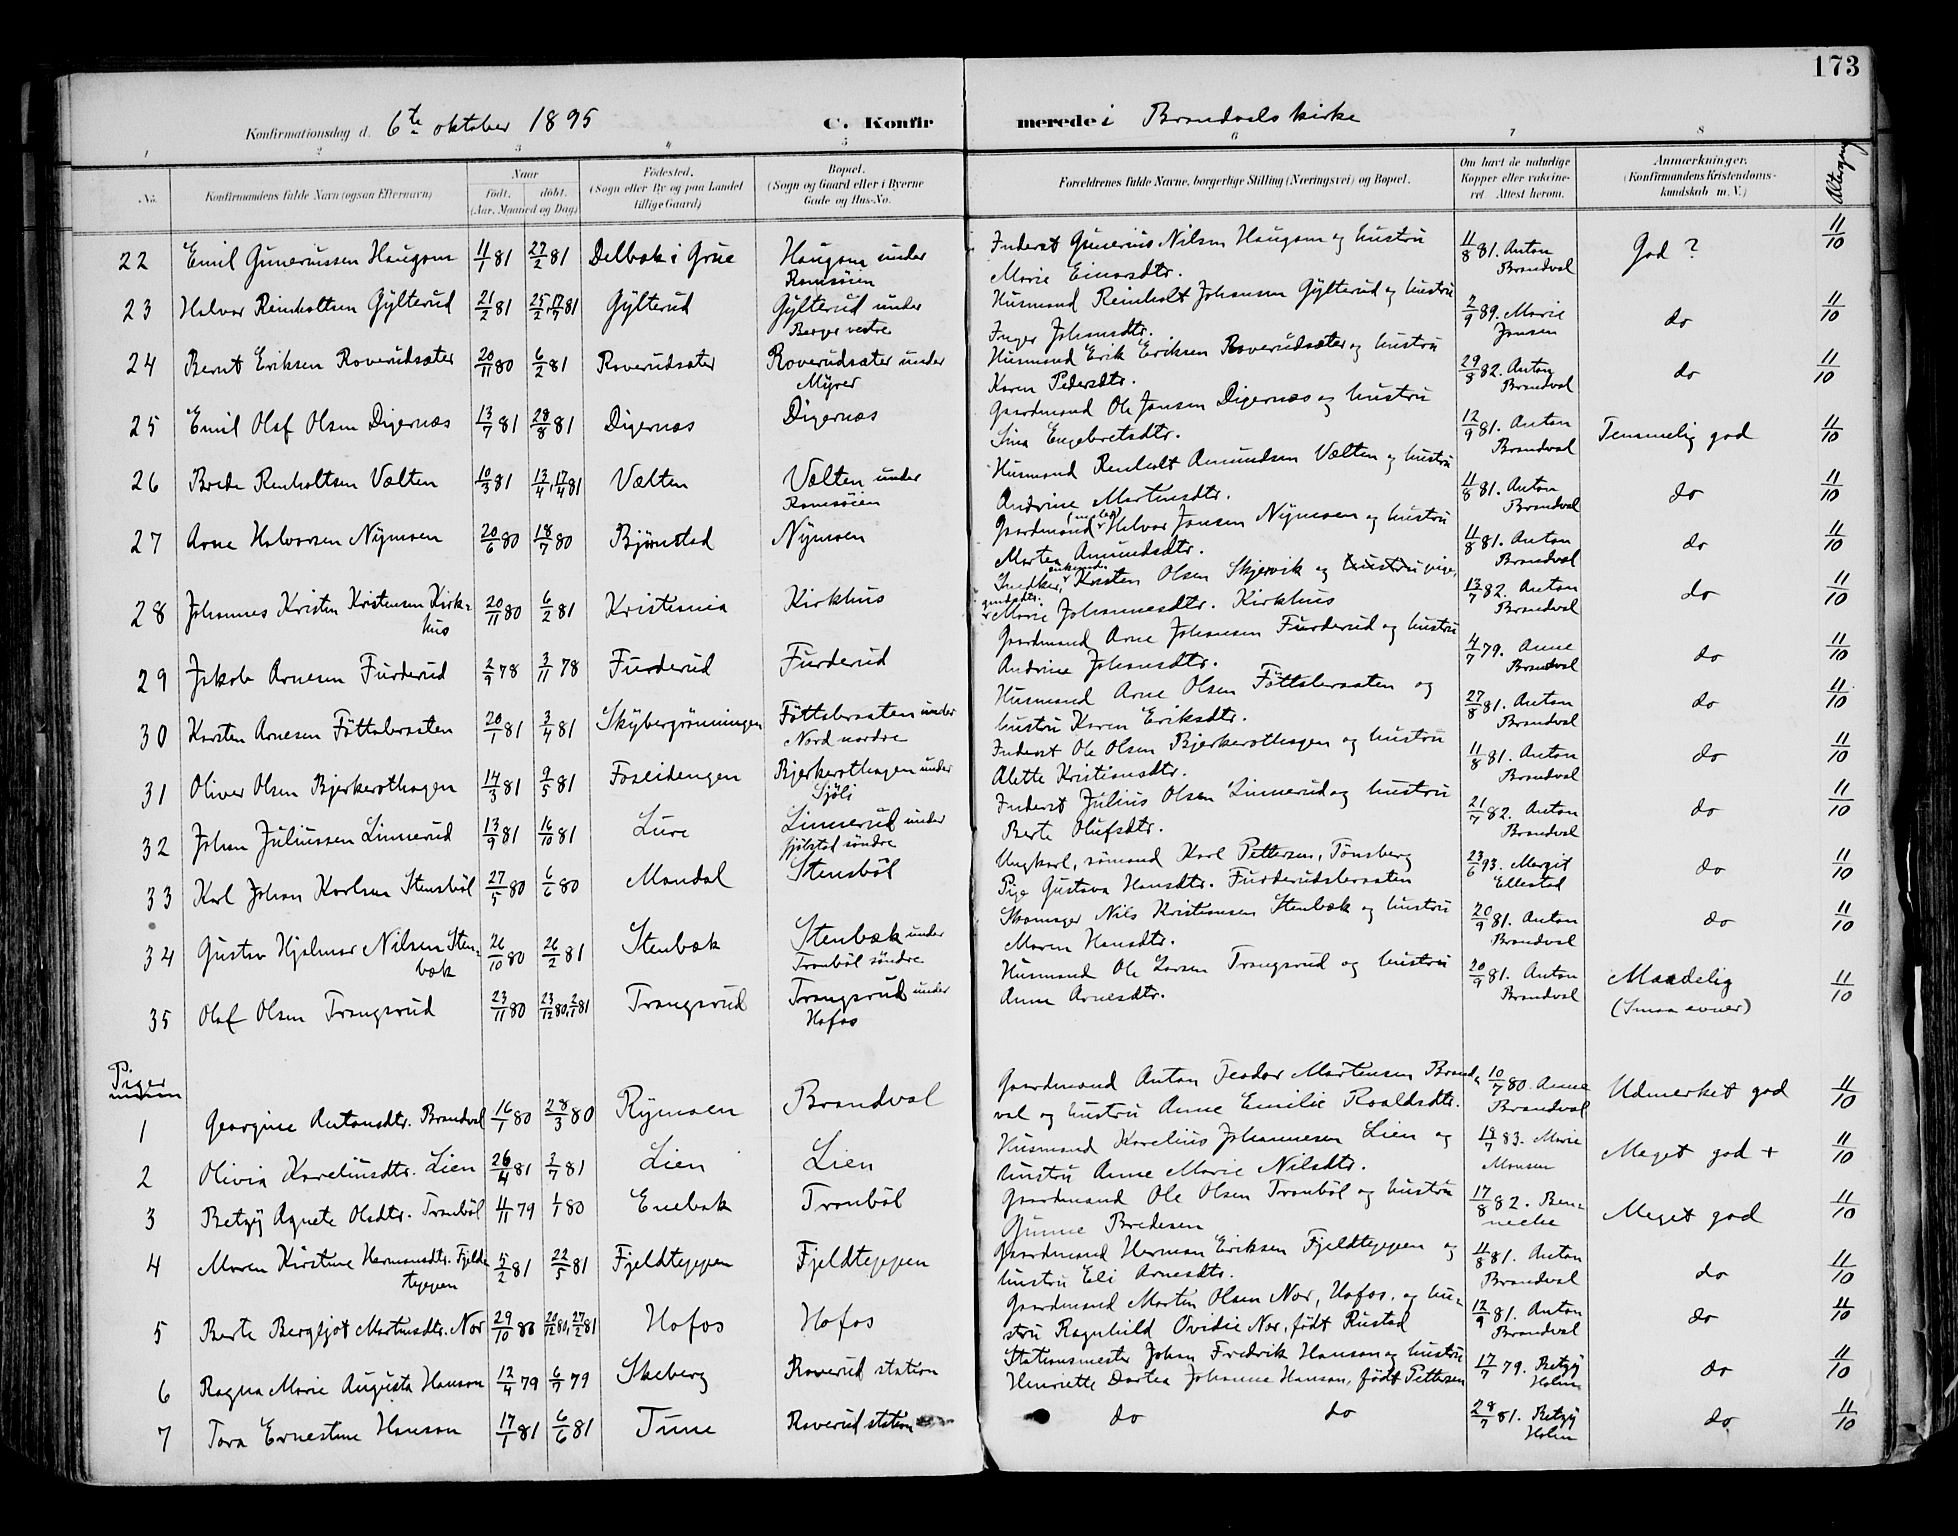 173
Konfirmationsdag d. 6te oktober 1895 C. Konfirmerede i Brandvals kirke
1 2 3 4 5 6 7 8
No. Konfirmandens fulde Navn (ogsaa Efternavn) Naar født. døbt. (Aar, Maaned og Dag) Fødested. (Sogn eller By og paa Landet tillige Gaard) Bopæl. (Sogn og Gaard eller i Byerne Gade og Hus-No. Forældrenes fulde Navne, borgerlige Stilling (Næringsvei) og Bopæl. Om havt de naturlige Kopper eller vaccineret. Attest herom. Anmærkninger. (Konfirmandens Kristendomskundskab m. V.) Altergang
22 Emil Gunerussen Haugom 11/1 81 27/2 81 Delbæk i Grue Haugom under Romsöien Inderst Gunerius Nilsen Haugom og hustru Marie Einarsdtr. 11/8 81. Anton Brandval God? 11/10
23 Halvor Reinholtsen Gylterud 21/2 81 25/2, 17/7 81 Gylterud Gylterud under Berger vestre Husmand Reinholt Johansen Gylterud og hustru Inger Johansdtr. 2/9 89. Marie Jansen do 11/10
24 Bernt Eriksen Roverudsæter 20/11 80 6/2 81 Roverudsæter Roverudsæter under Myrer Husmand Erik Eriksen Roverudsæter og hustru Karen Pedersdtr. 29/8 82. Anton Brandval do 11/10
25 Emil Olaf Olsen Digernæs 13/7 81 28/8 81 Digernæs Digernæs Gaardmand Ole Jansen Digernæs og hustru Sina Engebretsdtr. 12/9 81. Anton Brandval Temmelig god 11/10
26 Brede Renholtsen Vælten 10/3 81 13/4, 17/4 81 Vælten Vælten under Romsöien Husmand Renholt Amundsen Vælten og hustru Andrine Martinsdtr. 11/8 81. Anton Brandval do 11/10
27 Arne Halvorsen Nymoen 20/6 80 18/7 80 Bjørnstad Nymoen Gaardmand Halvor Jansen Nymoen og hustru Marten Amundsdtr. 11/8 81. Anton Brandval do 11/10
28 Johannes Kristen Kristensen Kirkhus 20/11 80 6/2 81 Kristiania Kirkhus Snedker, enkemand Kristen Olsen Skjervik og hustru pige, gaardmdtr. Marie Johannesdtr. Kirkhus 13/7 82. Anton Brandval do 11/10
29 Jakob Arnesen Furderud 2/9 78 3/11 78 Furderud Furderud Gaardmand Arne Johansen Furderud og hustru Andrine Johansdtr. 4/7 79. Anne Brandval do 11/10
30 Karsten Arnesen Föttsbraaten 20/1 81 3/4 81 Skybergrönningen Föttsbraaten under Nord nordre Husmand Arne Olsen Föttsbraaten og hustru Karen Eriksdtr. 27/8 81. Anton Brandval do 11/10
31 Oliver Olsen Bjerkerothagen 14/3 81 9/5 81 Foseidengen Bjerkerothagen under Sjöli Inderst Ole Olsen Bjerkerothagen og hustru Alette Kristiansdtr. 11/8 81. Anton Brandval do 11/10
32 Johan Juliussen Linnerud 13/9 81 16/10 81 Lure Linnerud under Gjölstad söndre Inderst Julius Olsen Linnerud og hustru Berte Olufsdtr. 21/7 82. Anton Brandval do 11/10
33 Karl Johan Karlsen Stensböl 27/5 80 6/6 80 Mandal Stensböl Ungkarl, sömand Karl Pettersen, Tönsberg Pige Gustava Hansdtr. Furderudsbraaten 23/6 93. Margit Ellestad do 11/10
34 Gustav Hjalmar Nilsen Stenbæk 26/10 80 26/2 81 Stenbæk Stenbæk under Tronböl söndre Skomager Nils Kristiansen Stenbæk og hustru Maren Hansdtr. 20/9 81. Anton Brandval do 11/10
35 Olaf Olsen Trangsrud 23/11 80 23/12 80, 2/7 81 Trangsrud Trangsrud under Hofos Husmand Ole Larsen Trangsrud og hustru Anne Arnesdtr. 20/9 81. Anton Brandval Maadelig (Smaa evner) 11/10
Piger
1 Georgine Antonsdtr. Brandval 16/1 80 28/3 80 Rymoen Brandval Gaardmand Anton Teodor Martensen Brandval og hustru Anne Emilie Roaldsdtr. 10/7 80. Anne Brandval Udmerket god 11/10
2 Olivia Kareliusdtr. Lien 26/4 81 3/7 81 Lien Lien Husmand Karelius Johannesen Lien og hustru Anne Marie Nilsdtr. 18/7 83. Marie Monsen Meget god + 11/10
3 Betzy Agnete Olsdtr. Tronböl 11/11 79 1/1 80 Enebak Tronböl Gaardmand Ole Olsen Tronböl og hustru Gunne Bredesen 17/8 82. Benneche Meget god 11/10
4 Maren Kirstine Hermansdtr. Fjeldteppen 5/2 81 22/5 81 Fjeldteppen Fjeldteppen Gaardmand Herman Eriksen Fjeldteppen og hustru Eli Arnesdtr. 11/8 81. Anton Brandval do 11/10
5 Berte Bergljot Martinsdtr. Nor 29/10 80 20/12 80, 27/2 81 Hofos Hofos Gaardmand Martin Olsen Nor, Hofos, og hustru Ragnhild Ovidie Nor, födt Rustad 12/9 81. Anton Brandval do 11/10
6 Ragna Marie Augusta Hanson 12/4 79 6/7 79 Skeberg Roverud station Stationsmester Johan Fredrik Hanson og hustru Henriette Dortea Johanne Hanson, födt Pettersen 17/7 79. Betzy Holm do 11/10
7 Tora Ernestine Hanson 17/1 81 6/6 81 Tune Roverud station do do 28/7 81. Betzy Holm do 11/10